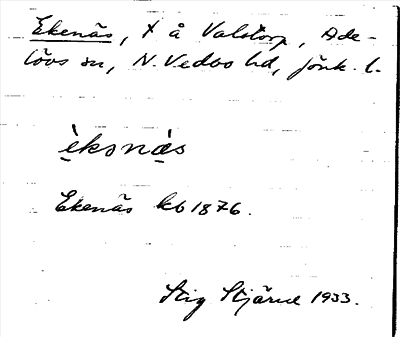 Ekenäs, † å Valstorp, Ade-
lövs sn, N. Vedbo hd, Jönk. l.
èksnä̀s
Ekenäs kb 1876.
Stig Stjärne 1933.